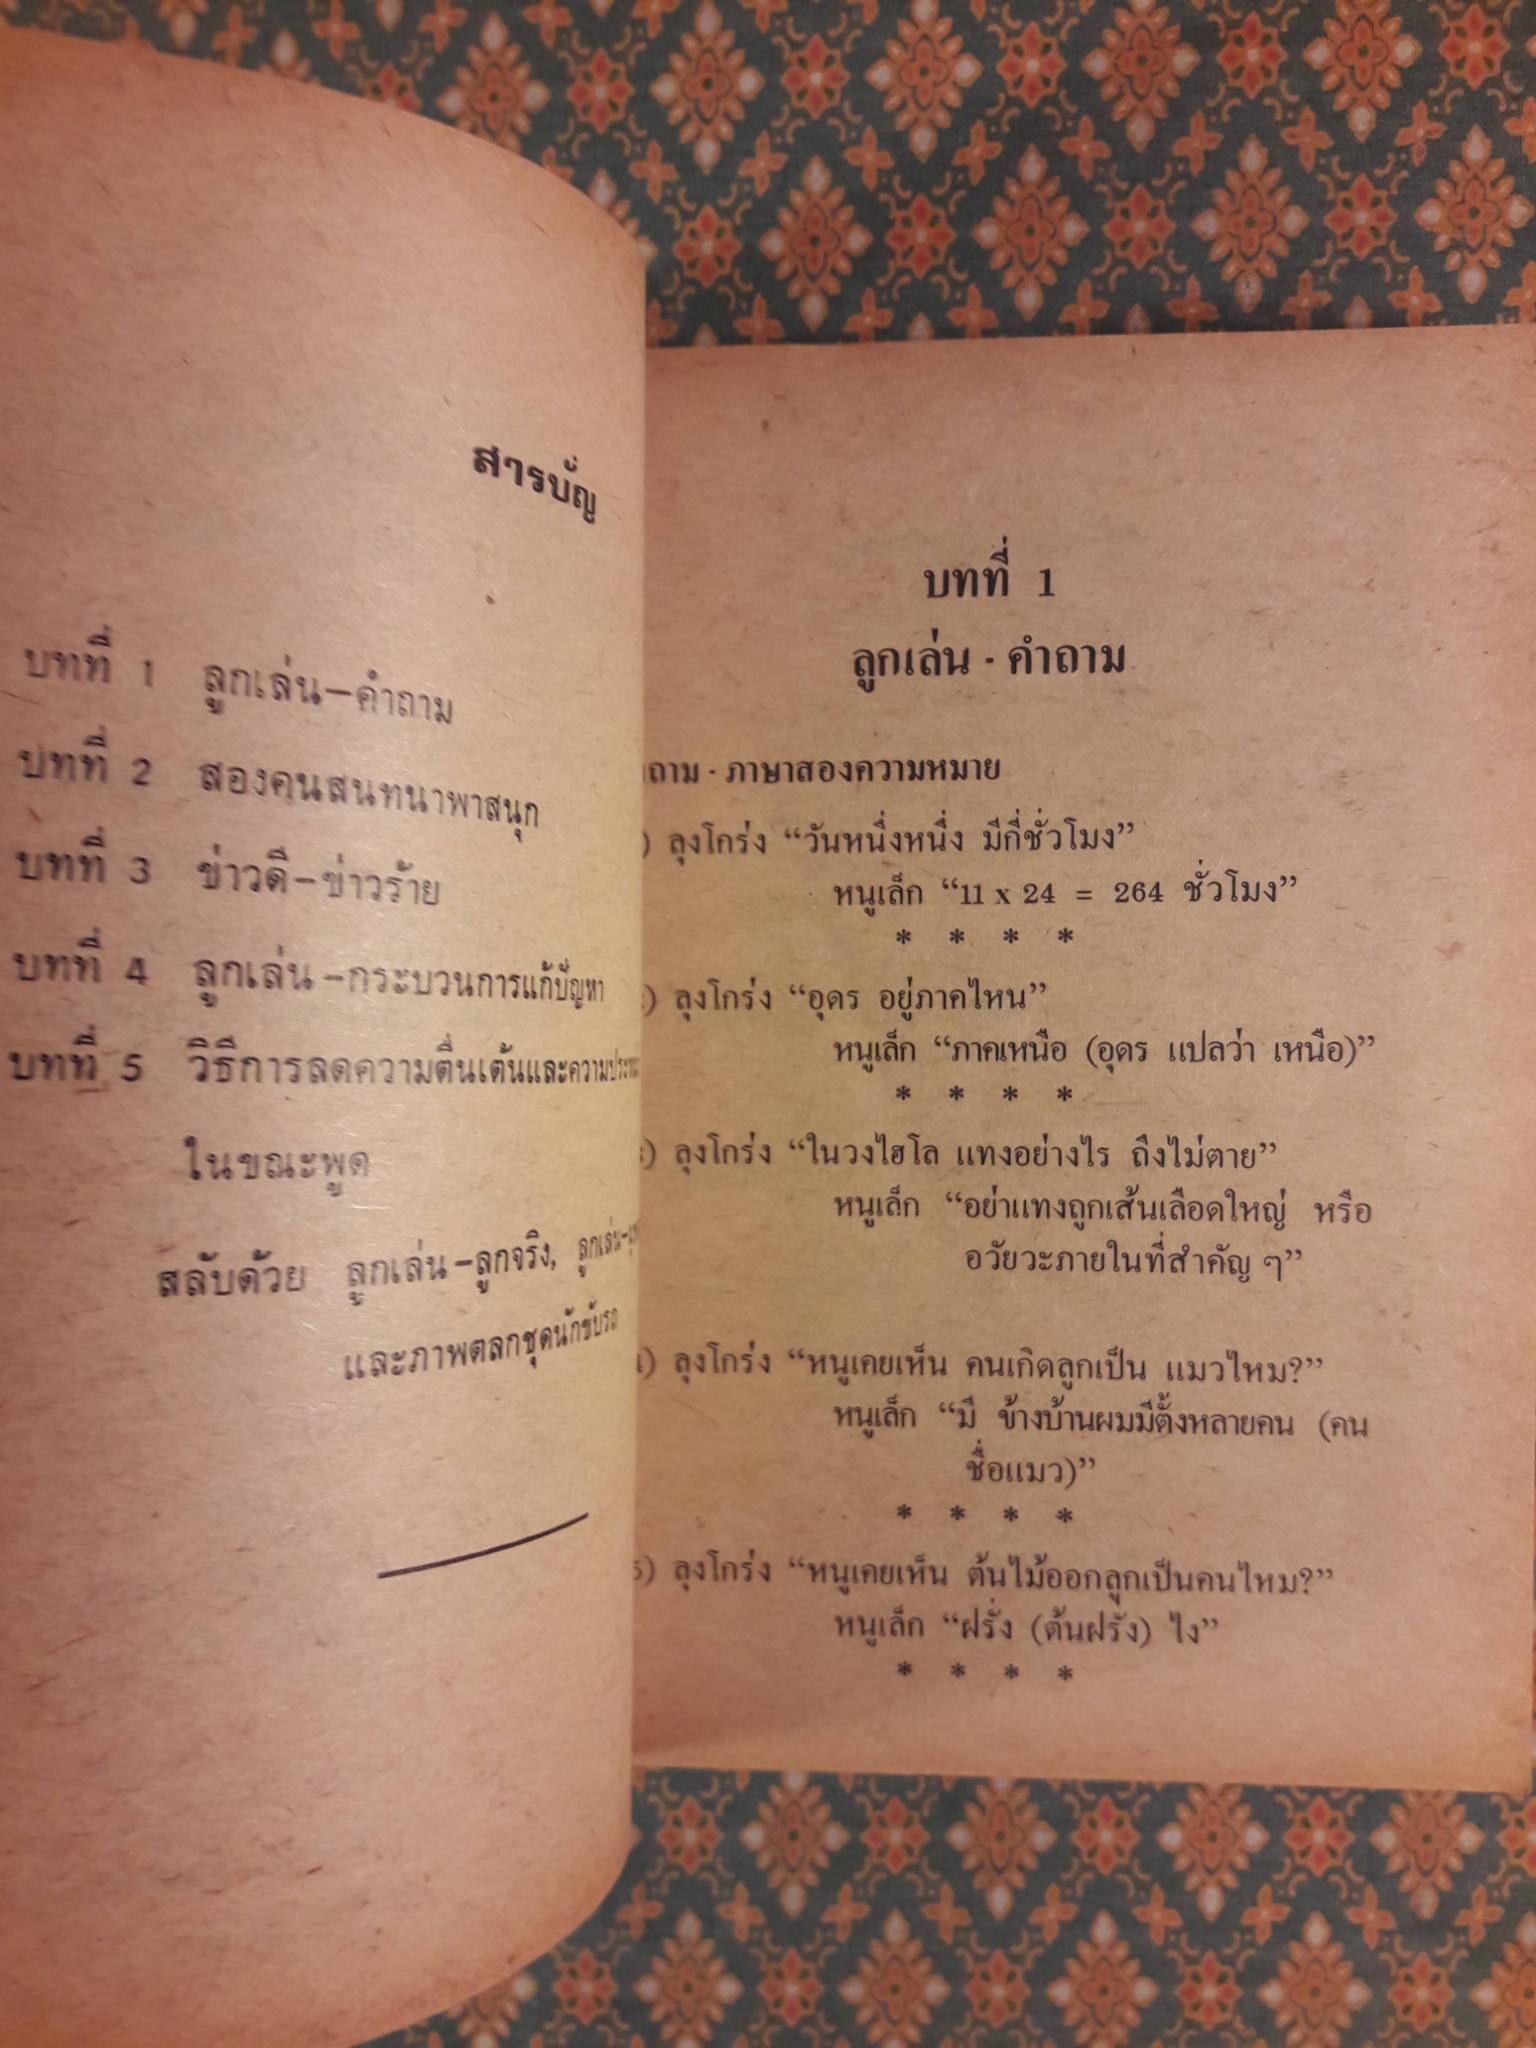 สารบัญ
บทที่ 1 ลูกเล่น–คำถาม
บทที่ 2 สองคนสนทนาพาสนุก
บทที่ 3 ข่าวดี–ข่าวร้าย
บทที่ 4 ลูกเล่น–กระบวนการแก้ปัญหา
บทที่ 5 วิธีการลดความตื่นเต้นและความประ
ในขณะพูด
สลับด้วย ลูกเล่น–ลูกจริง, ลูกเล่น–
และภาพตลกชุดนักขับรถ
บทที่ 1
ลูกเล่น - คำถาม
ถาม - ภาษาสองความหมาย
) ลุงโกร่ง “วันหนึ่งหนึ่ง มีกี่ชั่วโมง”
หนูเล็ก “11 x 24 = 264 ชั่วโมง”
* * * *
) ลุงโกร่ง “อุดร อยู่ภาคไหน”
หนูเล็ก “ภาคเหนือ (อุดร แปลว่า เหนือ)”
* * * *
) ลุงโกร่ง “ในวงไฮโล แทงอย่างไร ถึงไม่ตาย”
หนูเล็ก “อย่าแทงถูกเส้นเลือดใหญ่ หรือ
อวัยวะภายในที่สำคัญ ๆ”
) ลุงโกร่ง “หนูเคยเห็น คนเกิดลูกเป็น แมวไหม?”
หนูเล็ก “มี ข้างบ้านผมมีตั้งหลายคน (คน
ชื่อแมว)”
* * * *
) ลุงโกร่ง “หนูเคยเห็น ต้นไม้ออกลูกเป็นคนไหม?”
หนูเล็ก “ฝรั่ง (ต้นฝรั่ง) ไง”
* * * *